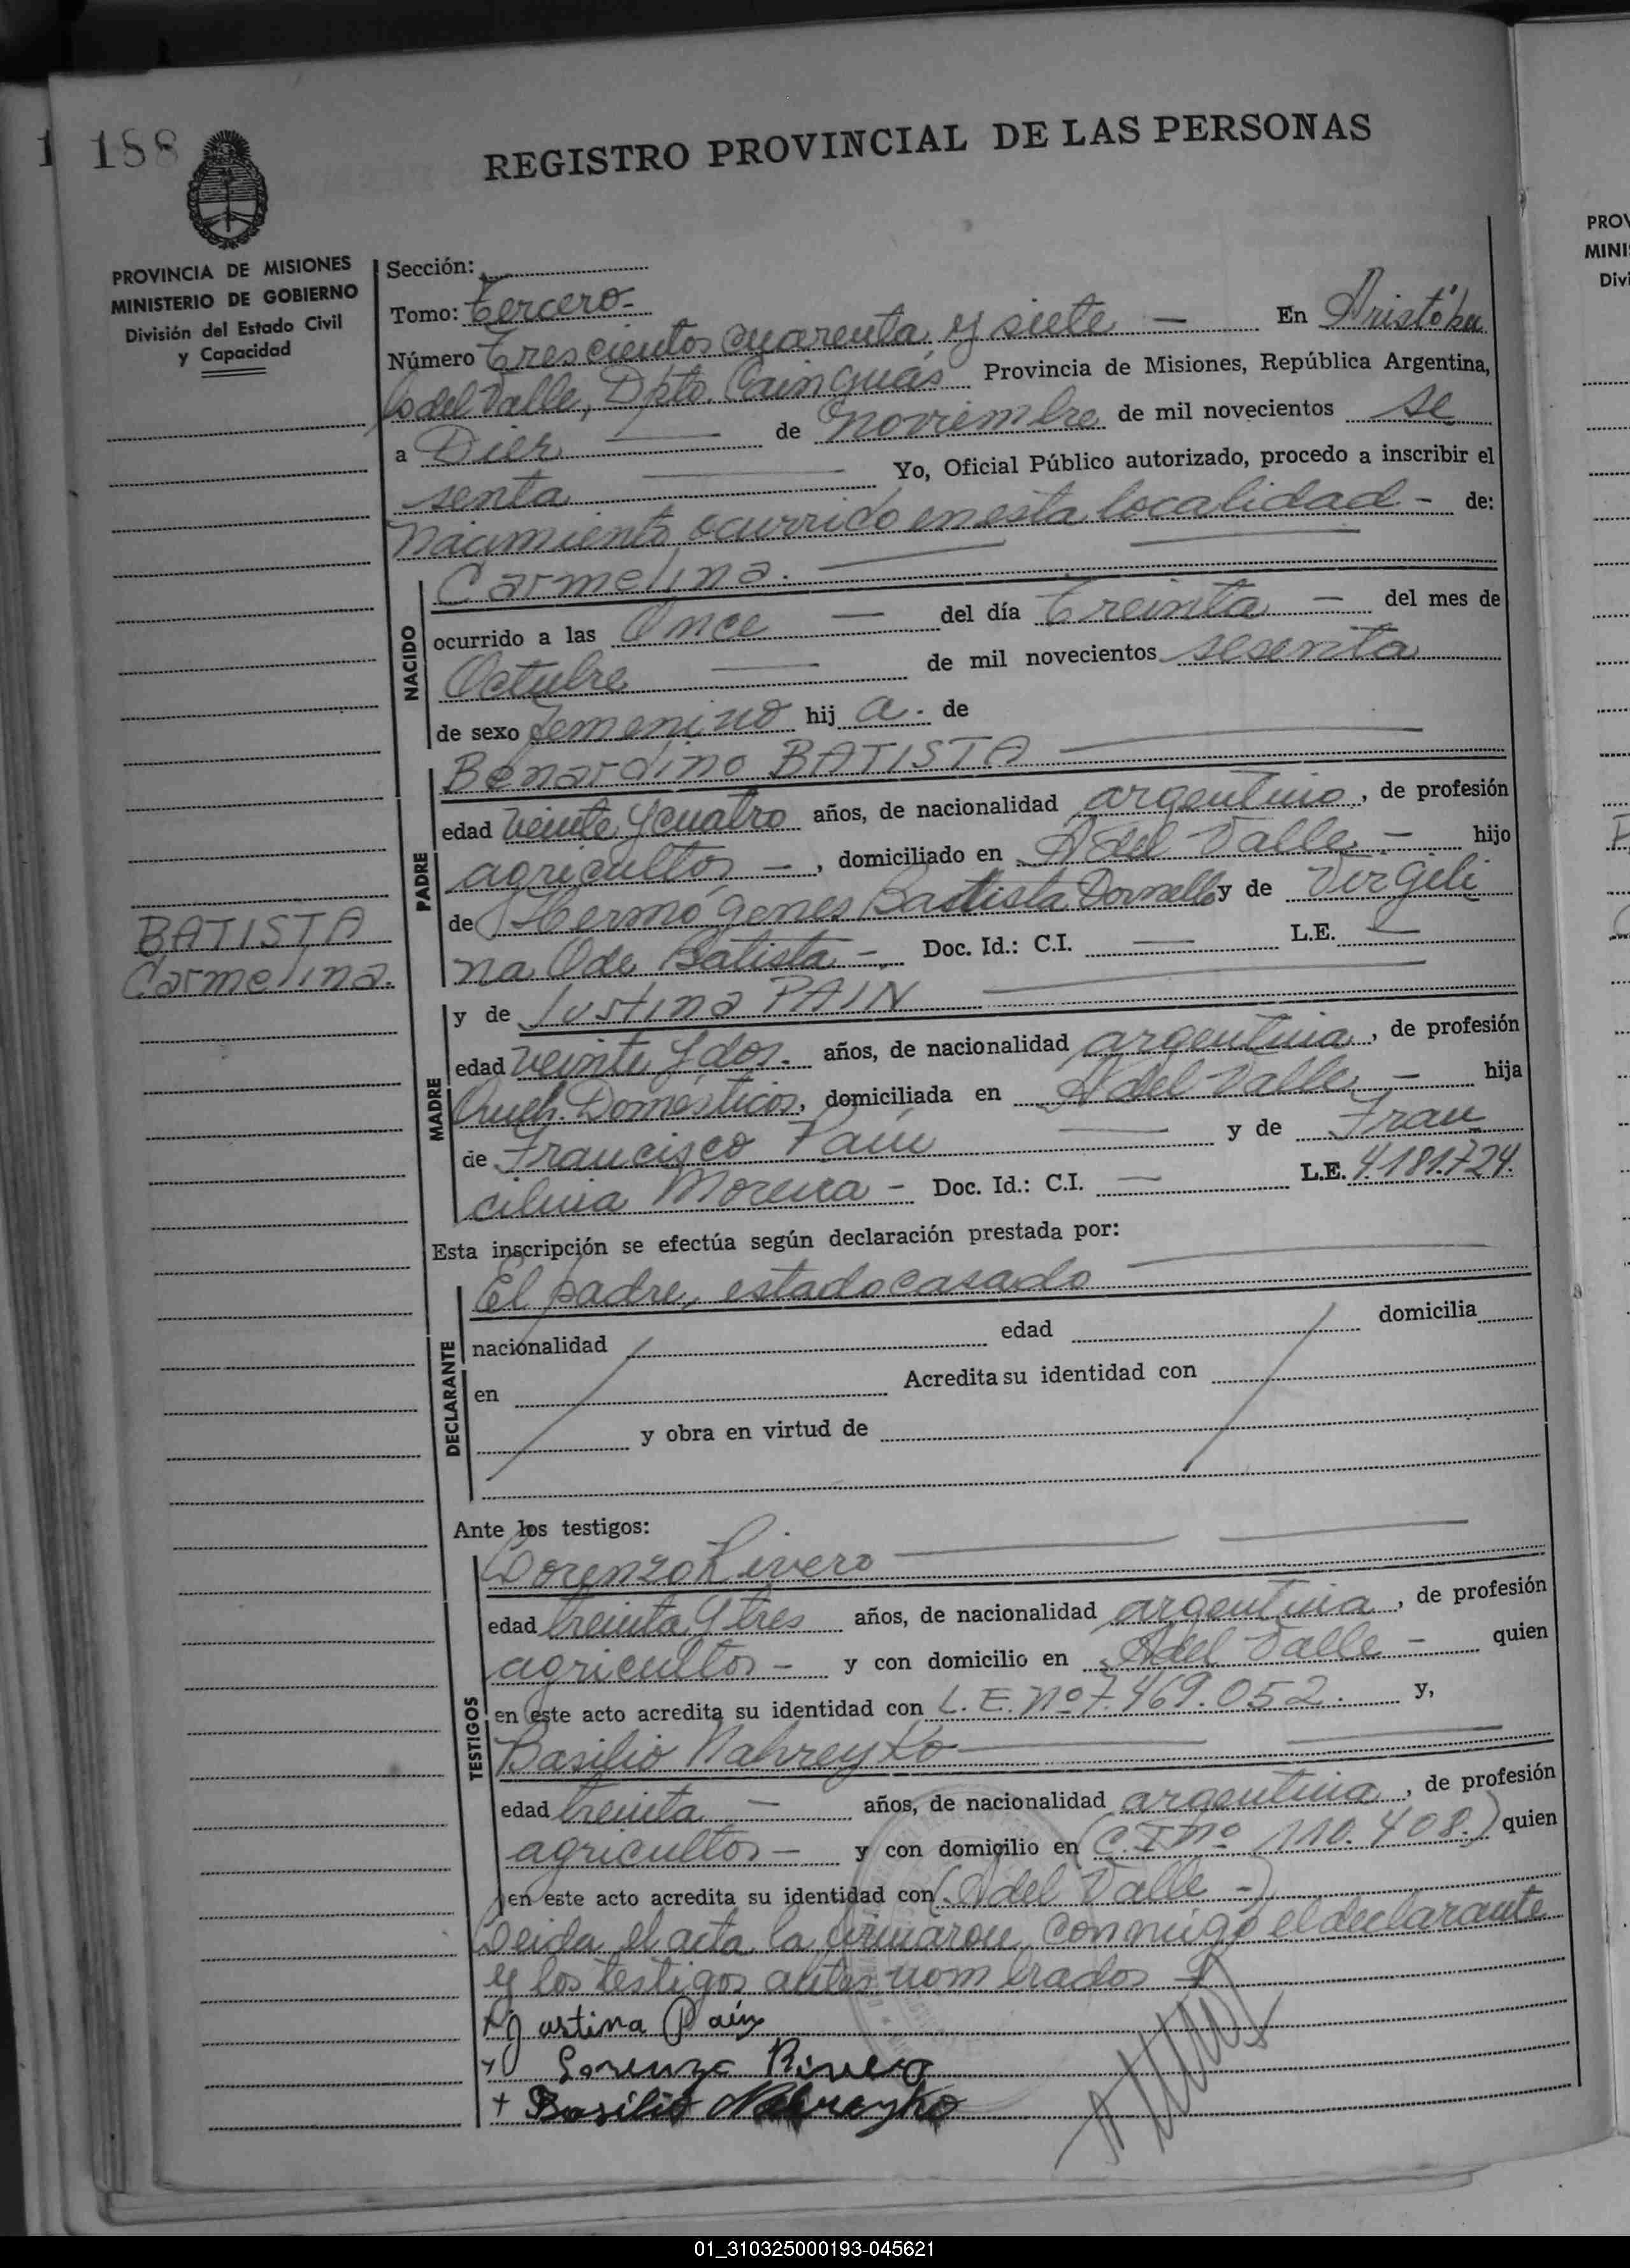 1 188
REGISTRO PROVINCIAL DE LAS PERSONAS
PROVINCIA DE MISIONES
MINISTERIO DE GOBIERNO
División del Estado Civil
y Capacidad
Sección:
Tomo: Tercero-
Número Trescientos cuarenta y siete — En Aristóbu
lo del Valle, Dpto. Cainguás Provincia de Misiones, República Argentina,
a Diez — de noviembre de mil novecientos se
senta — Yo, Oficial Público autorizado, procedo a inscribir el
Nacimiento ocurrido en esta localidad - de:
NACIDO
Carmelina. —
ocurrido a las Once — del día Treinta — del mes de
Octubre — de mil novecientos sesenta
de sexo femenino hij a. de
PADRE
Benardino BATISTA —
edad veinte y cuatro años, de nacionalidad argentino, de profesión
agricultor —, domiciliado en A del Valle - hijo
de Hermógenes Bastista Dornelles y de Virgili
na O de Batista - Doc. Id.: C.I. — L.E. —
BATISTA
Carmelina.
MADRE
y de Justina PAIN —
edad veinte y dos. años, de nacionalidad argentina, de profesión
Queh. Domésticos, domiciliada en A del Valle — hija
de Francisco Pain — y de Fran
cilina Moreira - Doc. Id.: C.I. — L.E. 4.181.724.
Esta inscripción se efectúa según declaración prestada por:
DECLARANTE
El padre, estado casado —
nacionalidad edad domicilia
en Acredita su identidad con
y obra en virtud de
Ante los testigos:
TESTIGOS
Lorenzo Rivero —
edad treinta y tres años, de nacionalidad argentina, de profesión
agricultor - y con domicilio en A del Valle - quien
en este acto acredita su identidad con L.E. Nº 7.469.052. y,
Basilio Nahreyko —
edad treinta — años, de nacionalidad argentina, de profesión
agricultor - y con domicilio en (C.I nº 110.408.) quien
en este acto acredita su identidad con (A del Valle -)
Leida el acta la firmaron conmigo el declarante
y los testigos antes nombrados
+ Justina Pain
+ Lorenzo Rivero
+ Basilio Nahreyko
PROV
MINI
Divi
01_310325000193-045621